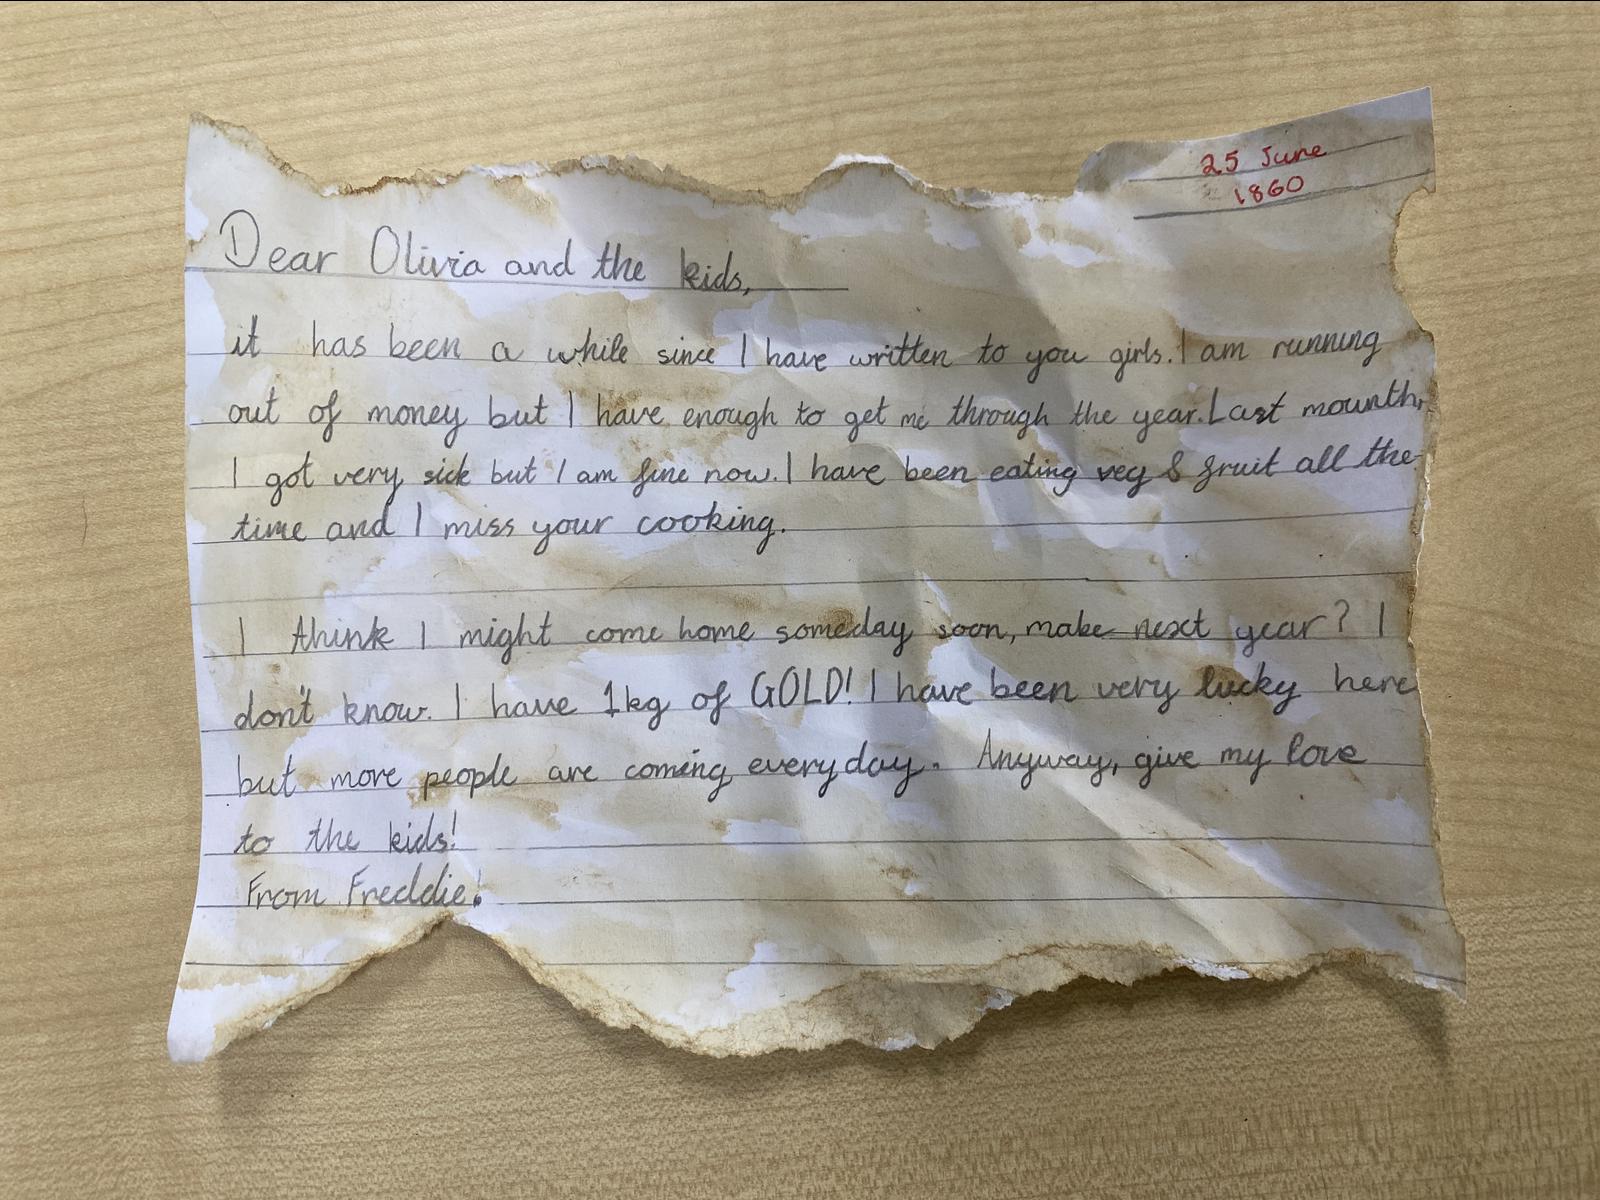 25 June
1860
Dear Olivia and the kids,
it has been a while since I have written to you girls. I am running
out of money but I have enough to get me through the year. Last mounth,
I got very sick but I am fine now. I have been eating veg & fruit all the
time and I miss your cooking.
I think I might come home someday soon, make next year? I
don't know. I have 1kg of GOLD! I have been very lucky here
but more people are coming everyday. Anyway, give my love
to the kids!
From Freddie!